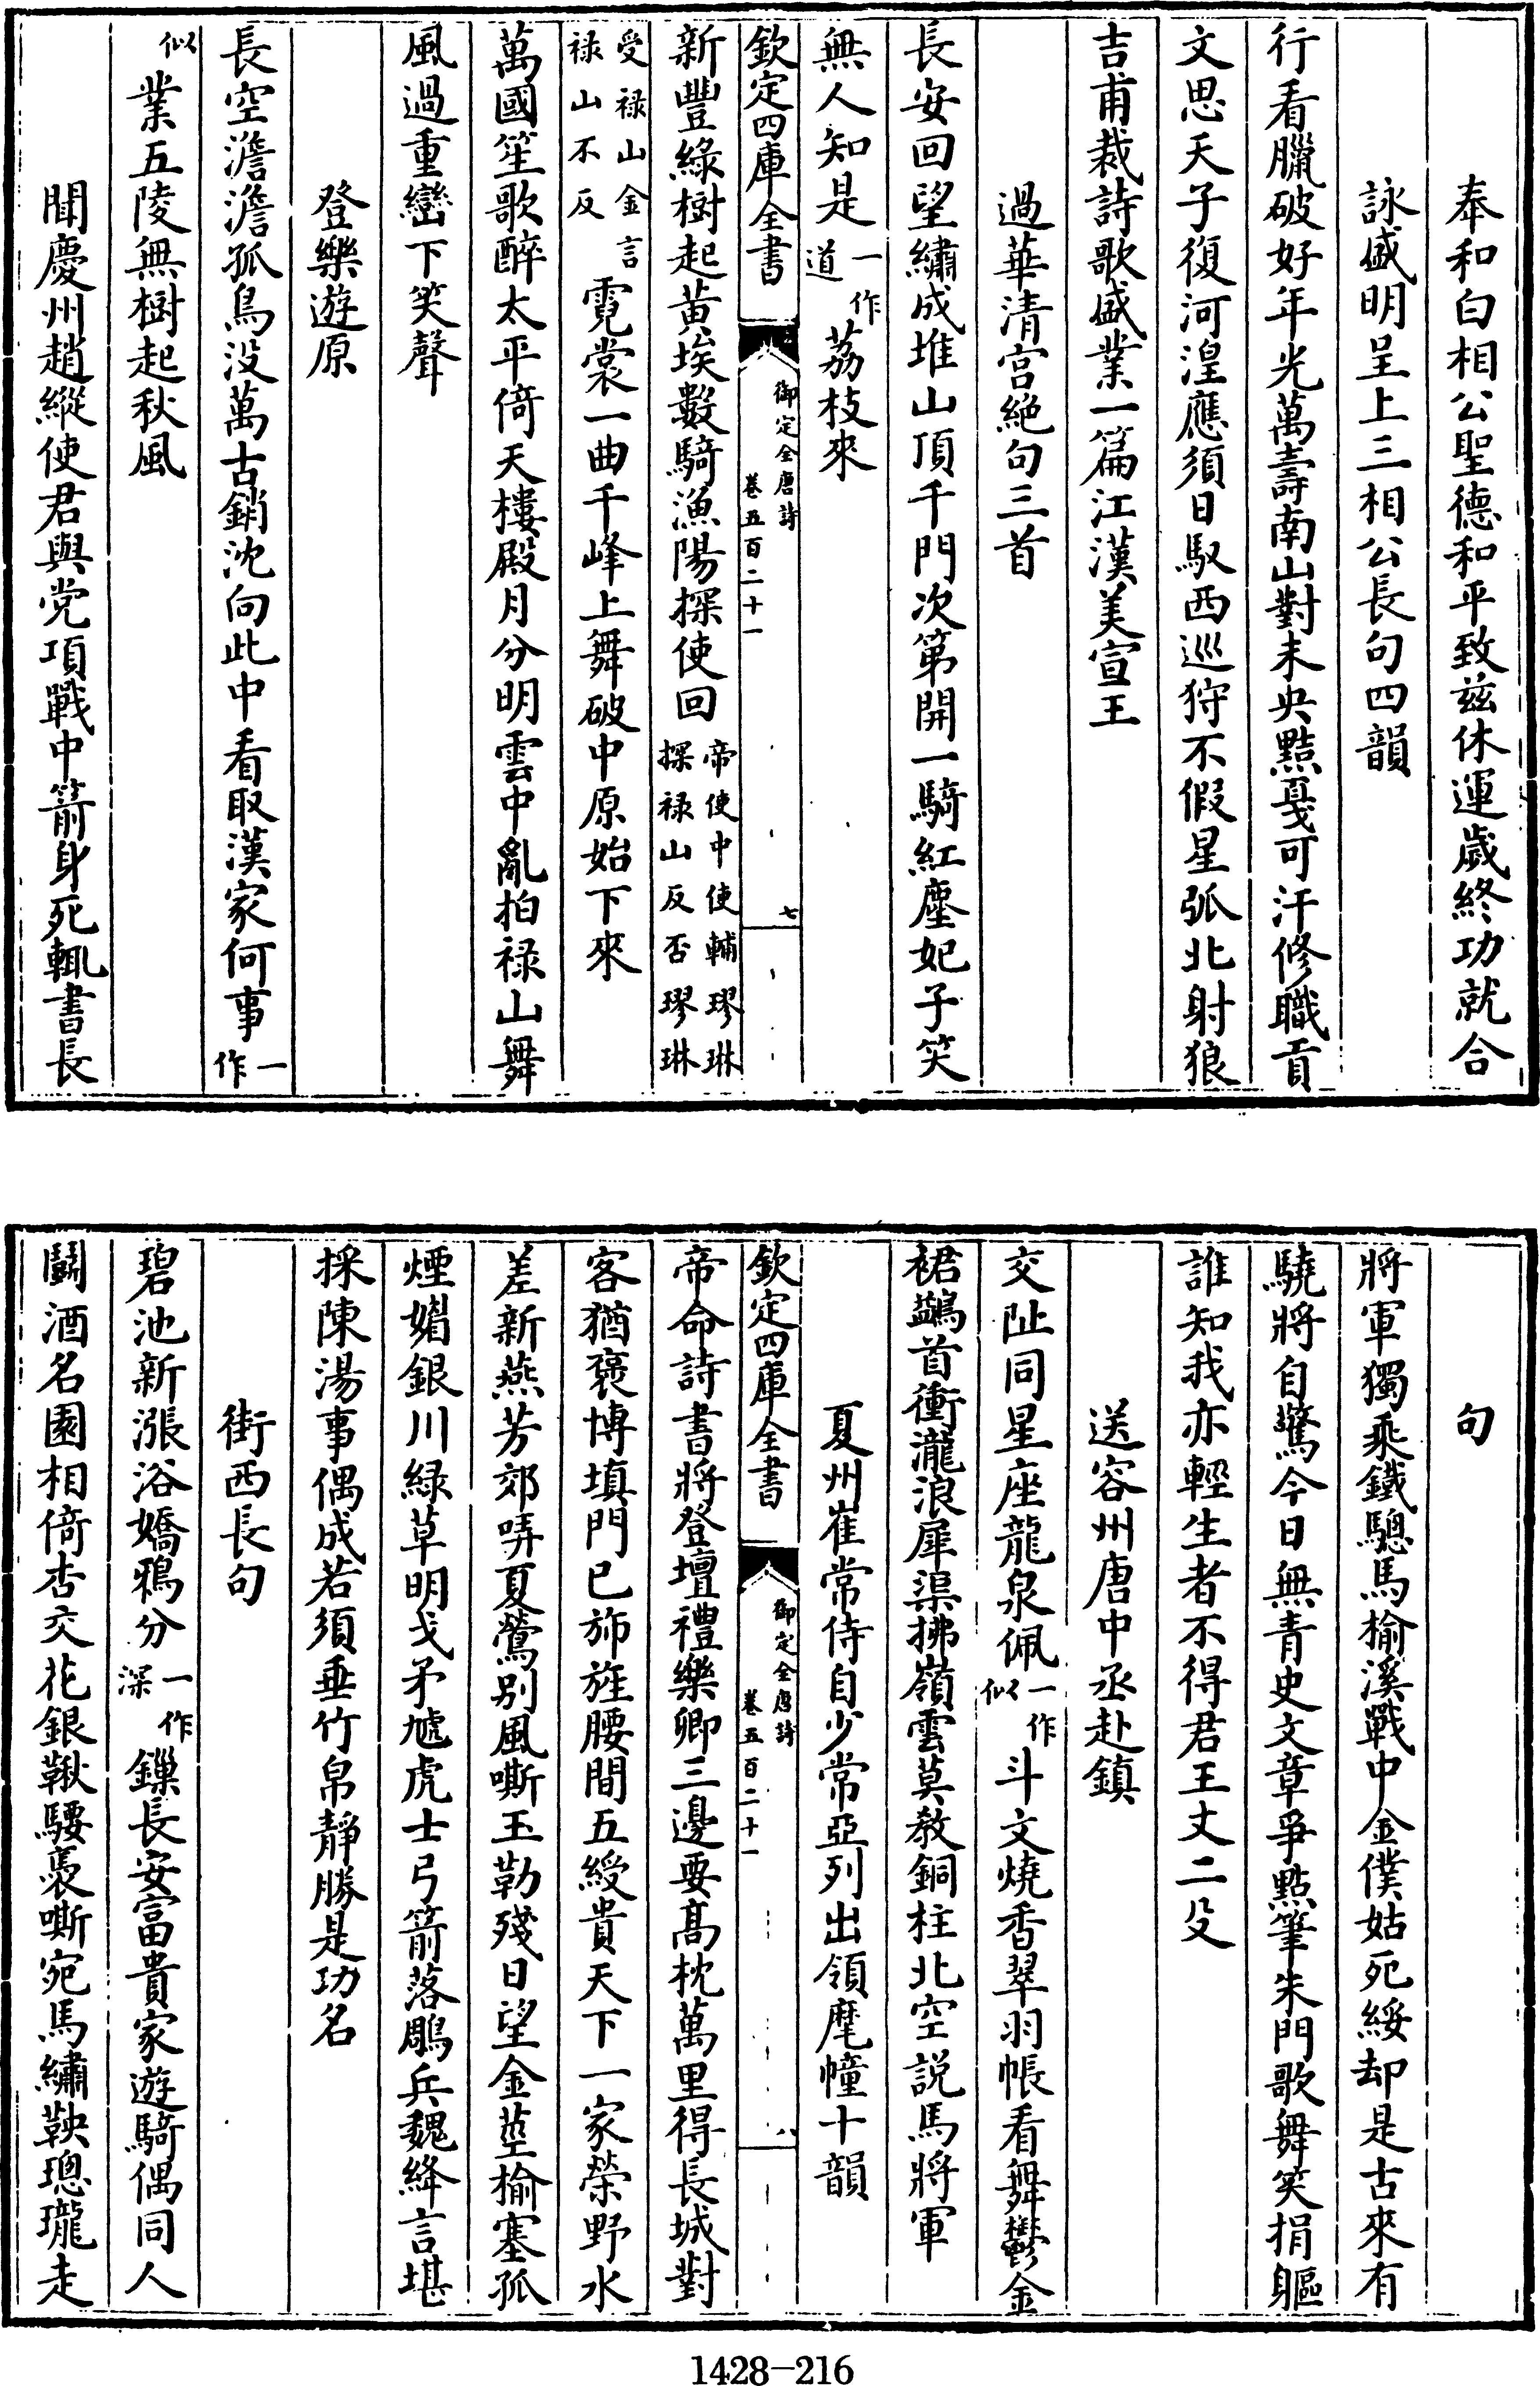 奉和白相公聖德和平致兹休運歲終功就合
詠盛明呈上三相公長句四韻
行看臘破好年光萬壽南山對未央點戛可汗修職貢
文思天子復河湟應須日馭西巡狩不假星弧北射狼
吉甫裁詩歌盛業一篇江漢美宣王
過華清宫絶句三首
長安回望繡成堆山頂千門次第開一騎紅塵妃子笑
無人知是一作道荔枝來
欽定四庫全書
御定全唐詩
卷五百二十一
七
新豐綠樹起黃埃數騎漁陽探使回帝使中使輔璆琳探祿山反否璆琳
受祿山金言祿山不反霓裳一曲千峰上舞破中原始下來
萬國笙歌醉太平倚天樓殿月分明雲中亂拍祿山舞
風過重巒下笑聲
登樂遊原
長空澹澹孤鳥没萬古銷沈向此中看取漢家何事一作
似業五陵無樹起秋風
聞慶州趙縱使君與党項戰中箭身死輒書長
句
將軍獨乘鐵驄馬榆溪戰中金僕姑死綏却是古來有
驍將自驚今日無青史文章爭點筆朱門歌舞笑捐軀
誰知我亦輕生者不得君王丈二殳
送容州唐中丞赴鎮
交阯同星座龍泉佩一作似斗文燒香翠羽帳看舞鬱金
裙鷁首衝瀧浪犀渠拂嶺雲莫教銅柱北空説馬將軍
夏州崔常侍自少常亞列出領麾幢十韻
欽定四庫全書
御定全唐詩
卷五百二十一
八
帝命詩書將登壇禮樂卿三邊要高枕萬里得長城對
客猶褒博填門已斾旌腰間五綬貴天下一家榮野水
差新燕芳郊哢夏鶯别風嘶玉勒殘日望金莖榆塞孤
煙媚銀川緑草明戈矛虓虎士弓箭落鵰兵魏絳言堪
採陳湯事偶成若須垂竹帛靜勝是功名
街西長句
碧池新漲浴嬌鴉分一作深鏁長安富貴家遊騎偶同人
鬬酒名園相倚杏交花銀鞦騕褭嘶宛馬繡鞅璁瓏走
1428-216